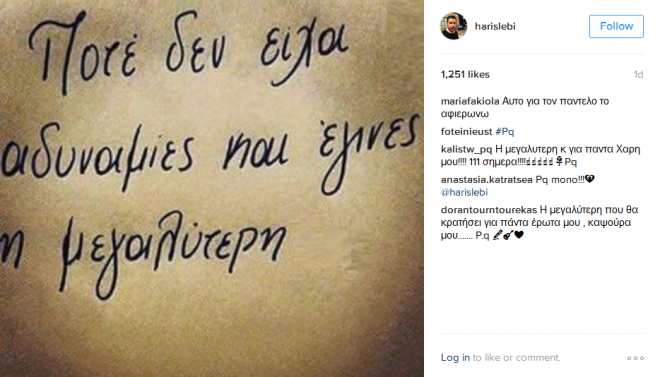 Ποτέ δεν ειχα
αδυναμιες και έγινες
η μεγαλύτερη
harislebi
Follow
1,251 likes
1d
mariafakiola Αυτο για τον παντελο το
αφιερωνω
foteinieust #Pq
kalistw_pq Η μεγαλυτερη κ για παντα Χαρη
μου!!!! 111 σημερα!!!!☝☝☝☝☝🌹Pq
anastasia.katratsea Pq mono!!!💔
@harislebi
dorantourntourekas Η μεγαλύτερη που θα
κρατήσει για πάντα έρωτα μου , καψούρα
μου....... P.q 🎤🎸❤
Log in to like or comment.